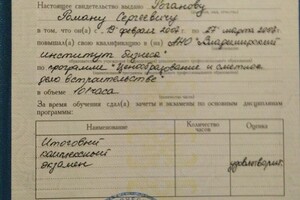 Настоящее свидетельство выдано Роганову
Роману Сергеевичу
в том, что он(а) с 19 февраля 2007г. по 27 марта 2007г.
повышал(а) свою квалификацию в (на) АНО "Владимирский
институт бизнеса"
по программе "Ценообразование и сметное
дело в строительстве"
в объеме 101 часа
За время обучения сдал(а) зачеты и экзамены по основным дисциплинам
программы:
Наименование Количество часов Оценка
Итоговый
комплексный
экзамен удовлетворит.